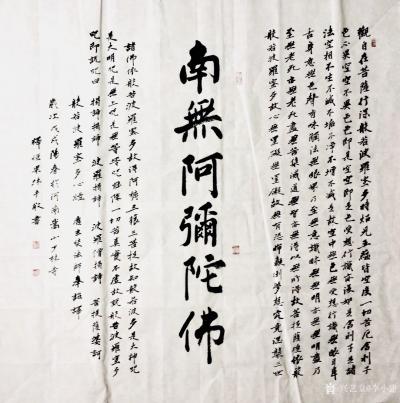 觀自在菩薩行深般若波羅蜜多時照見五蘊皆空度一切苦厄舍利子
色不異空空不異色色即是空空即是色受想行識亦復如是舍利子是諸
法空相不生不滅不垢不淨不增不減是故空中無色無受想行識無眼耳鼻
舌身意無色聲香味觸法無眼界乃至無意識界無無明亦無無明盡乃
至無老死亦無老死盡無苦集滅道無智亦無得以無所得故菩提薩埵依
般若波羅蜜多故心無罣礙無罣礙故無有恐怖遠離顛倒夢想究竟涅槃三世
南無阿彌陀佛
諸佛依般若波羅蜜多故得阿耨多羅三藐三菩提故知般若波羅蜜多是大神咒
是大明咒是無上咒是無等等咒能除一切苦真實不虛故說般若波羅蜜多
咒即說咒曰 揭諦揭諦 波羅揭諦 波羅僧揭諦 菩提薩婆訶
般若波羅蜜多心經 唐玄奘法師奉詔譯
歲次戊戌陽春於河南嵩山少林寺
敬書